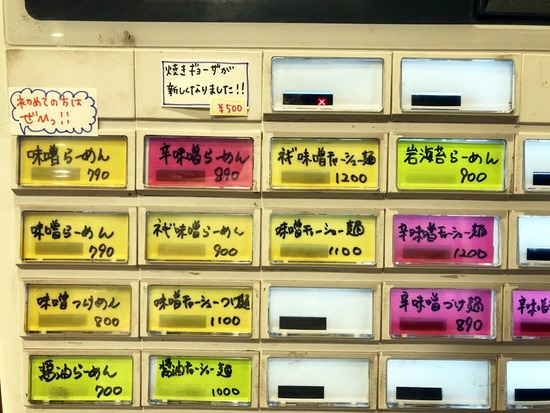 焼きギョーザが
新しくなりました!!
¥500
初めての方は
ぜひっ!!
味噌らーめん
790
辛味噌らーめん
890
味噌チャーシュー麺
1200
岩海苔らーめん
900
味噌らーめん
790
味噌らーめん
900
味噌チャーシュー麺
1100
辛味噌チャーシュー麺
1200
味噌つけめん
800
味噌チャーシューつけ麺
1100
辛味噌つけ麺
890
辛味噌
醤油らーめん
700
醤油チャーシュー麺
1000